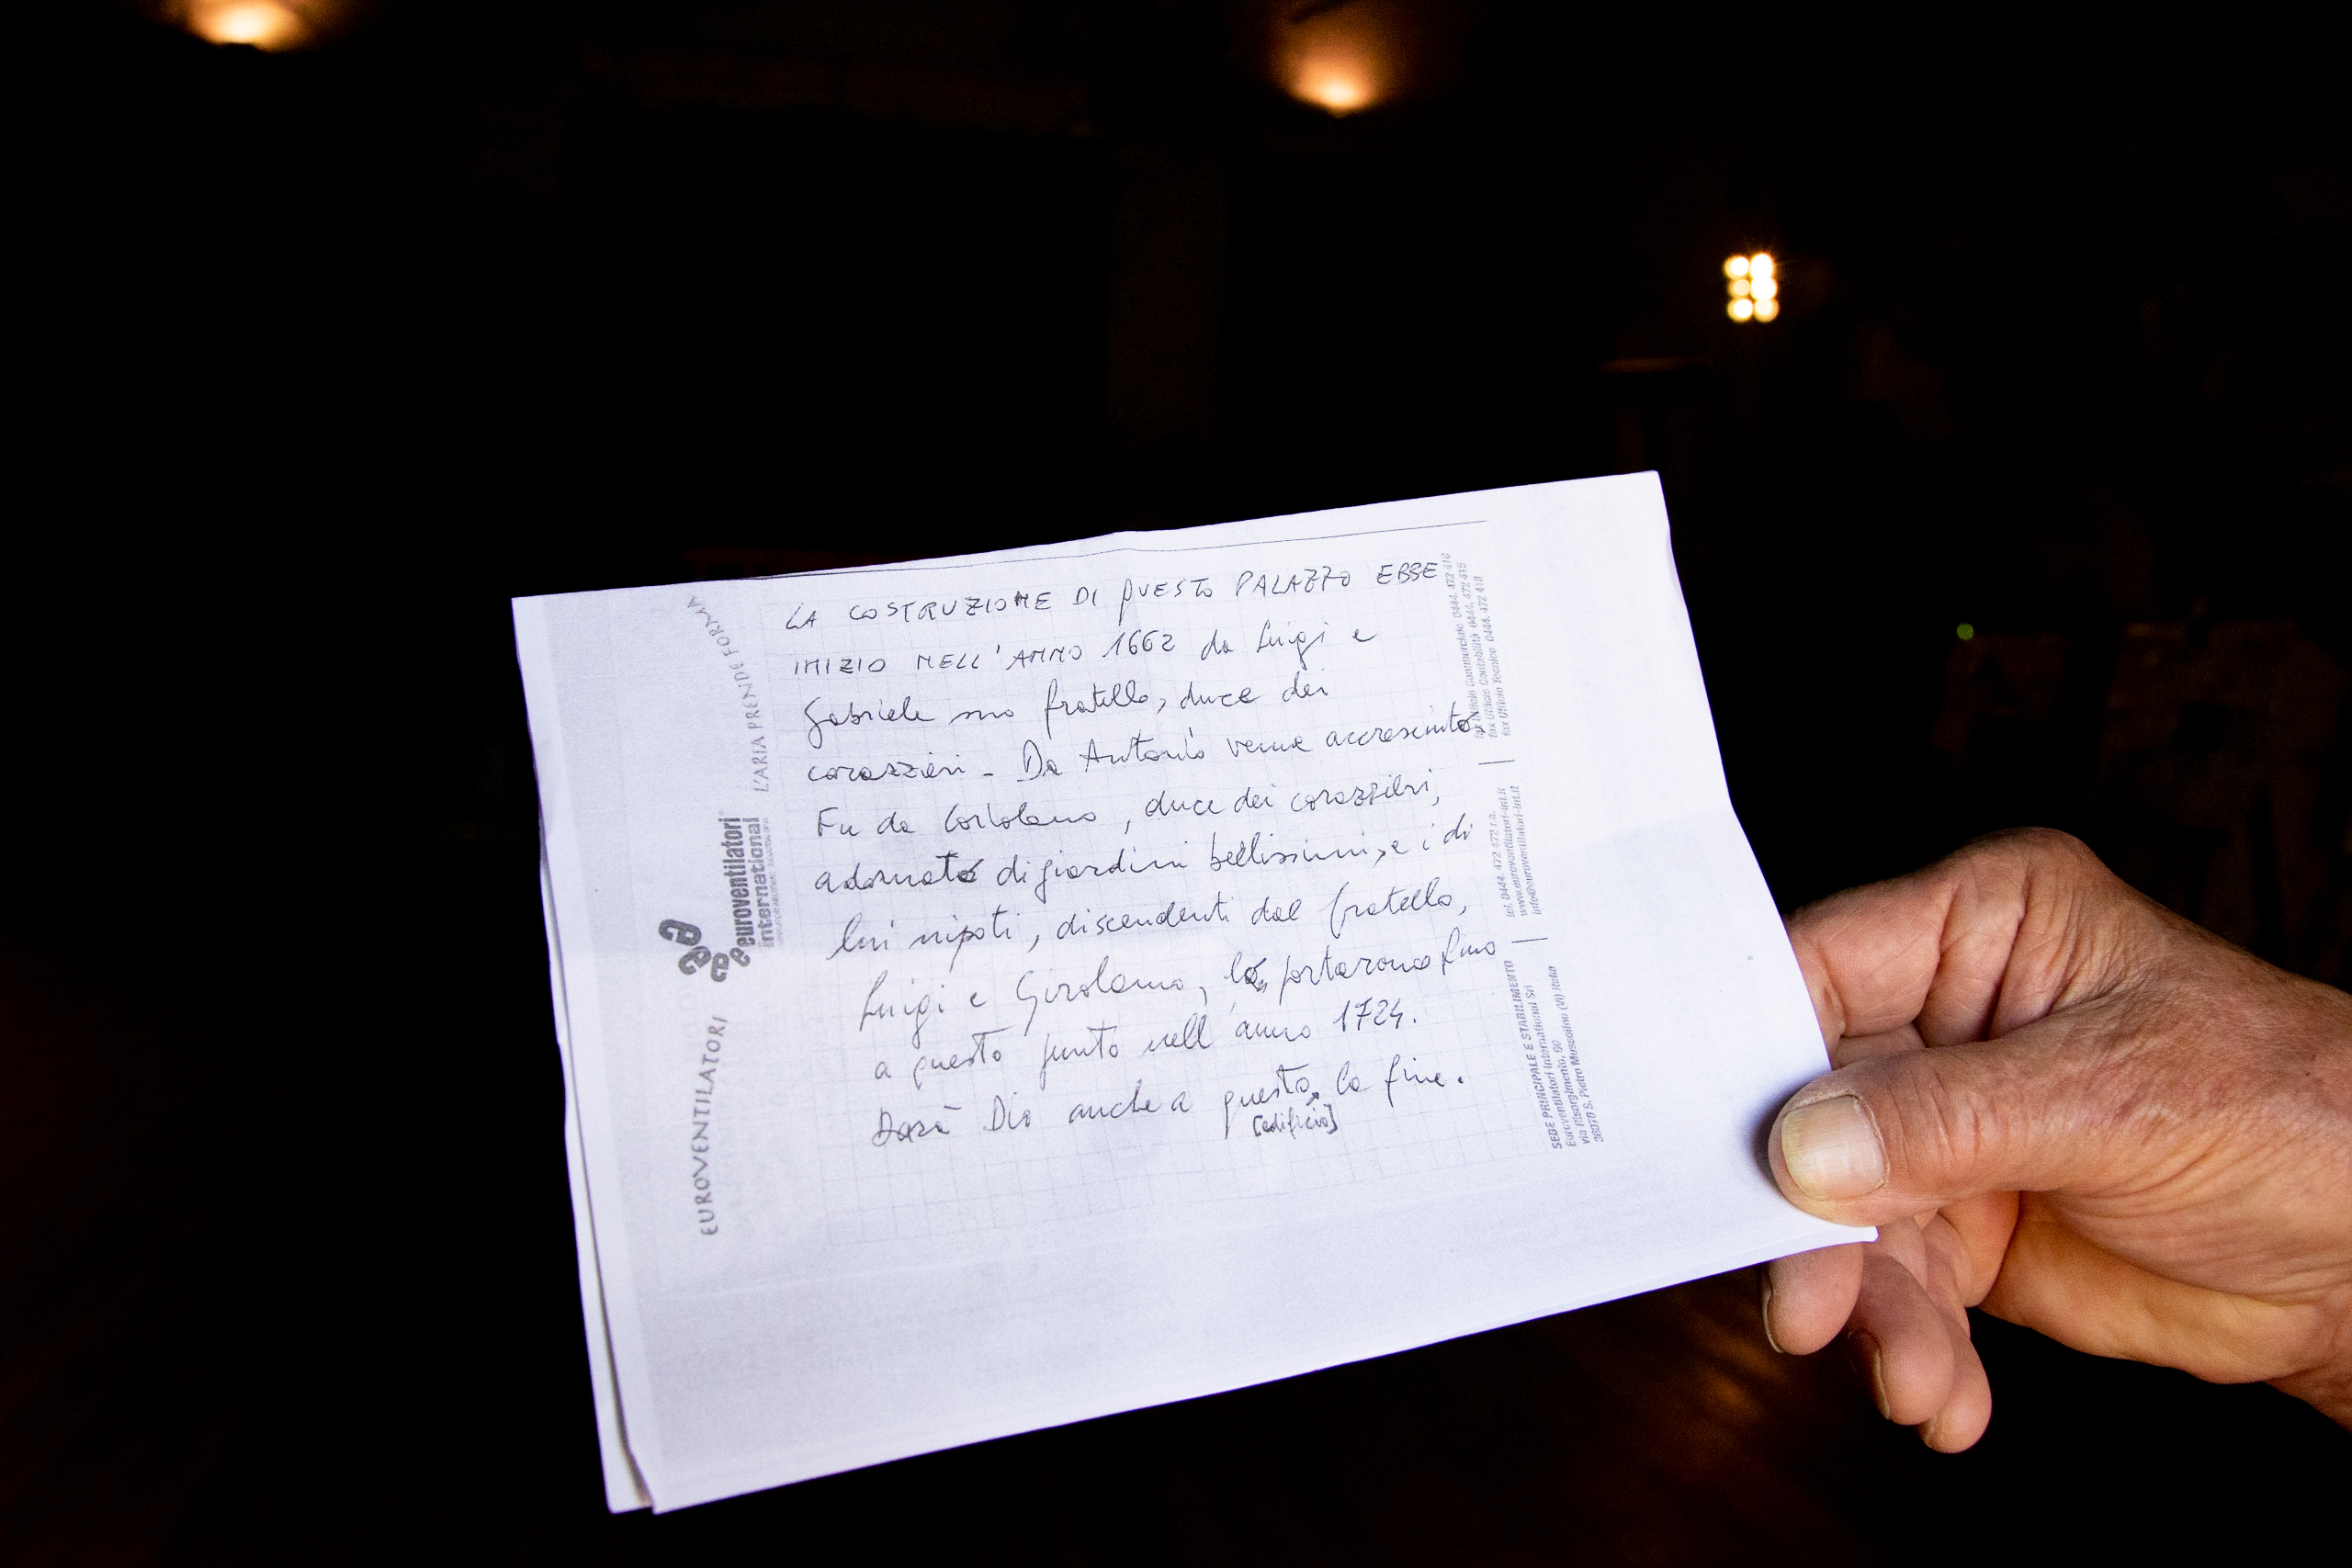 LA COSTRUZIONE DI QUESTO PALAZZO EBBE
INIZIO NELL'ANNO 1662 da Luigi e
Gabriele suo fratello, duce dei
corazzieri - Da Antonio venne accresciuto,
Fu da Coriolano, duce dei corazzieri,
adornato di giardini bellissimi, e i di
lui nipoti, discendenti dal fratello,
Luigi e Girolamo, lo portarono fino
a questo punto nell'anno 1724.
Darà Dio anche a questo la fine.
[edificio]
EUROVENTILATORI
L'ARIA PRENDE FORMA
euroventilatori
international
SEDE PRINCIPALE E STABILIMENTO
Euroventilatori International Srl
via Risorgimento, 90
36070 S. Pietro Mussolino (VI) Italia
tel. 0444. 472 472 r.a.
www.euroventilatori-int.it
info@euroventilatori-int.it
fax Ufficio Commerciale 0444. 472 418
fax Ufficio Contabilità 0444. 472 415
fax Ufficio Tecnico 0444. 472 418